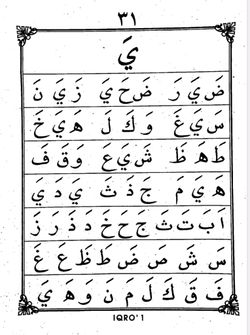 ٣١
يَ
ضَيَرَ ضَحَيَ زَيَنَ
سَيَغَ وَكَلَ هَيَخَ
طَهَظَ شَيَعَ وَقَفَ
هَيَمَ جَذَثَ يَدَيَ
اَبَتَثَ جَحَخَ دَذَرَزَ
سَشَصَضَطَظَعَغَ
فَقَكَلَمَنَوَهَيَ
IQRO' 1